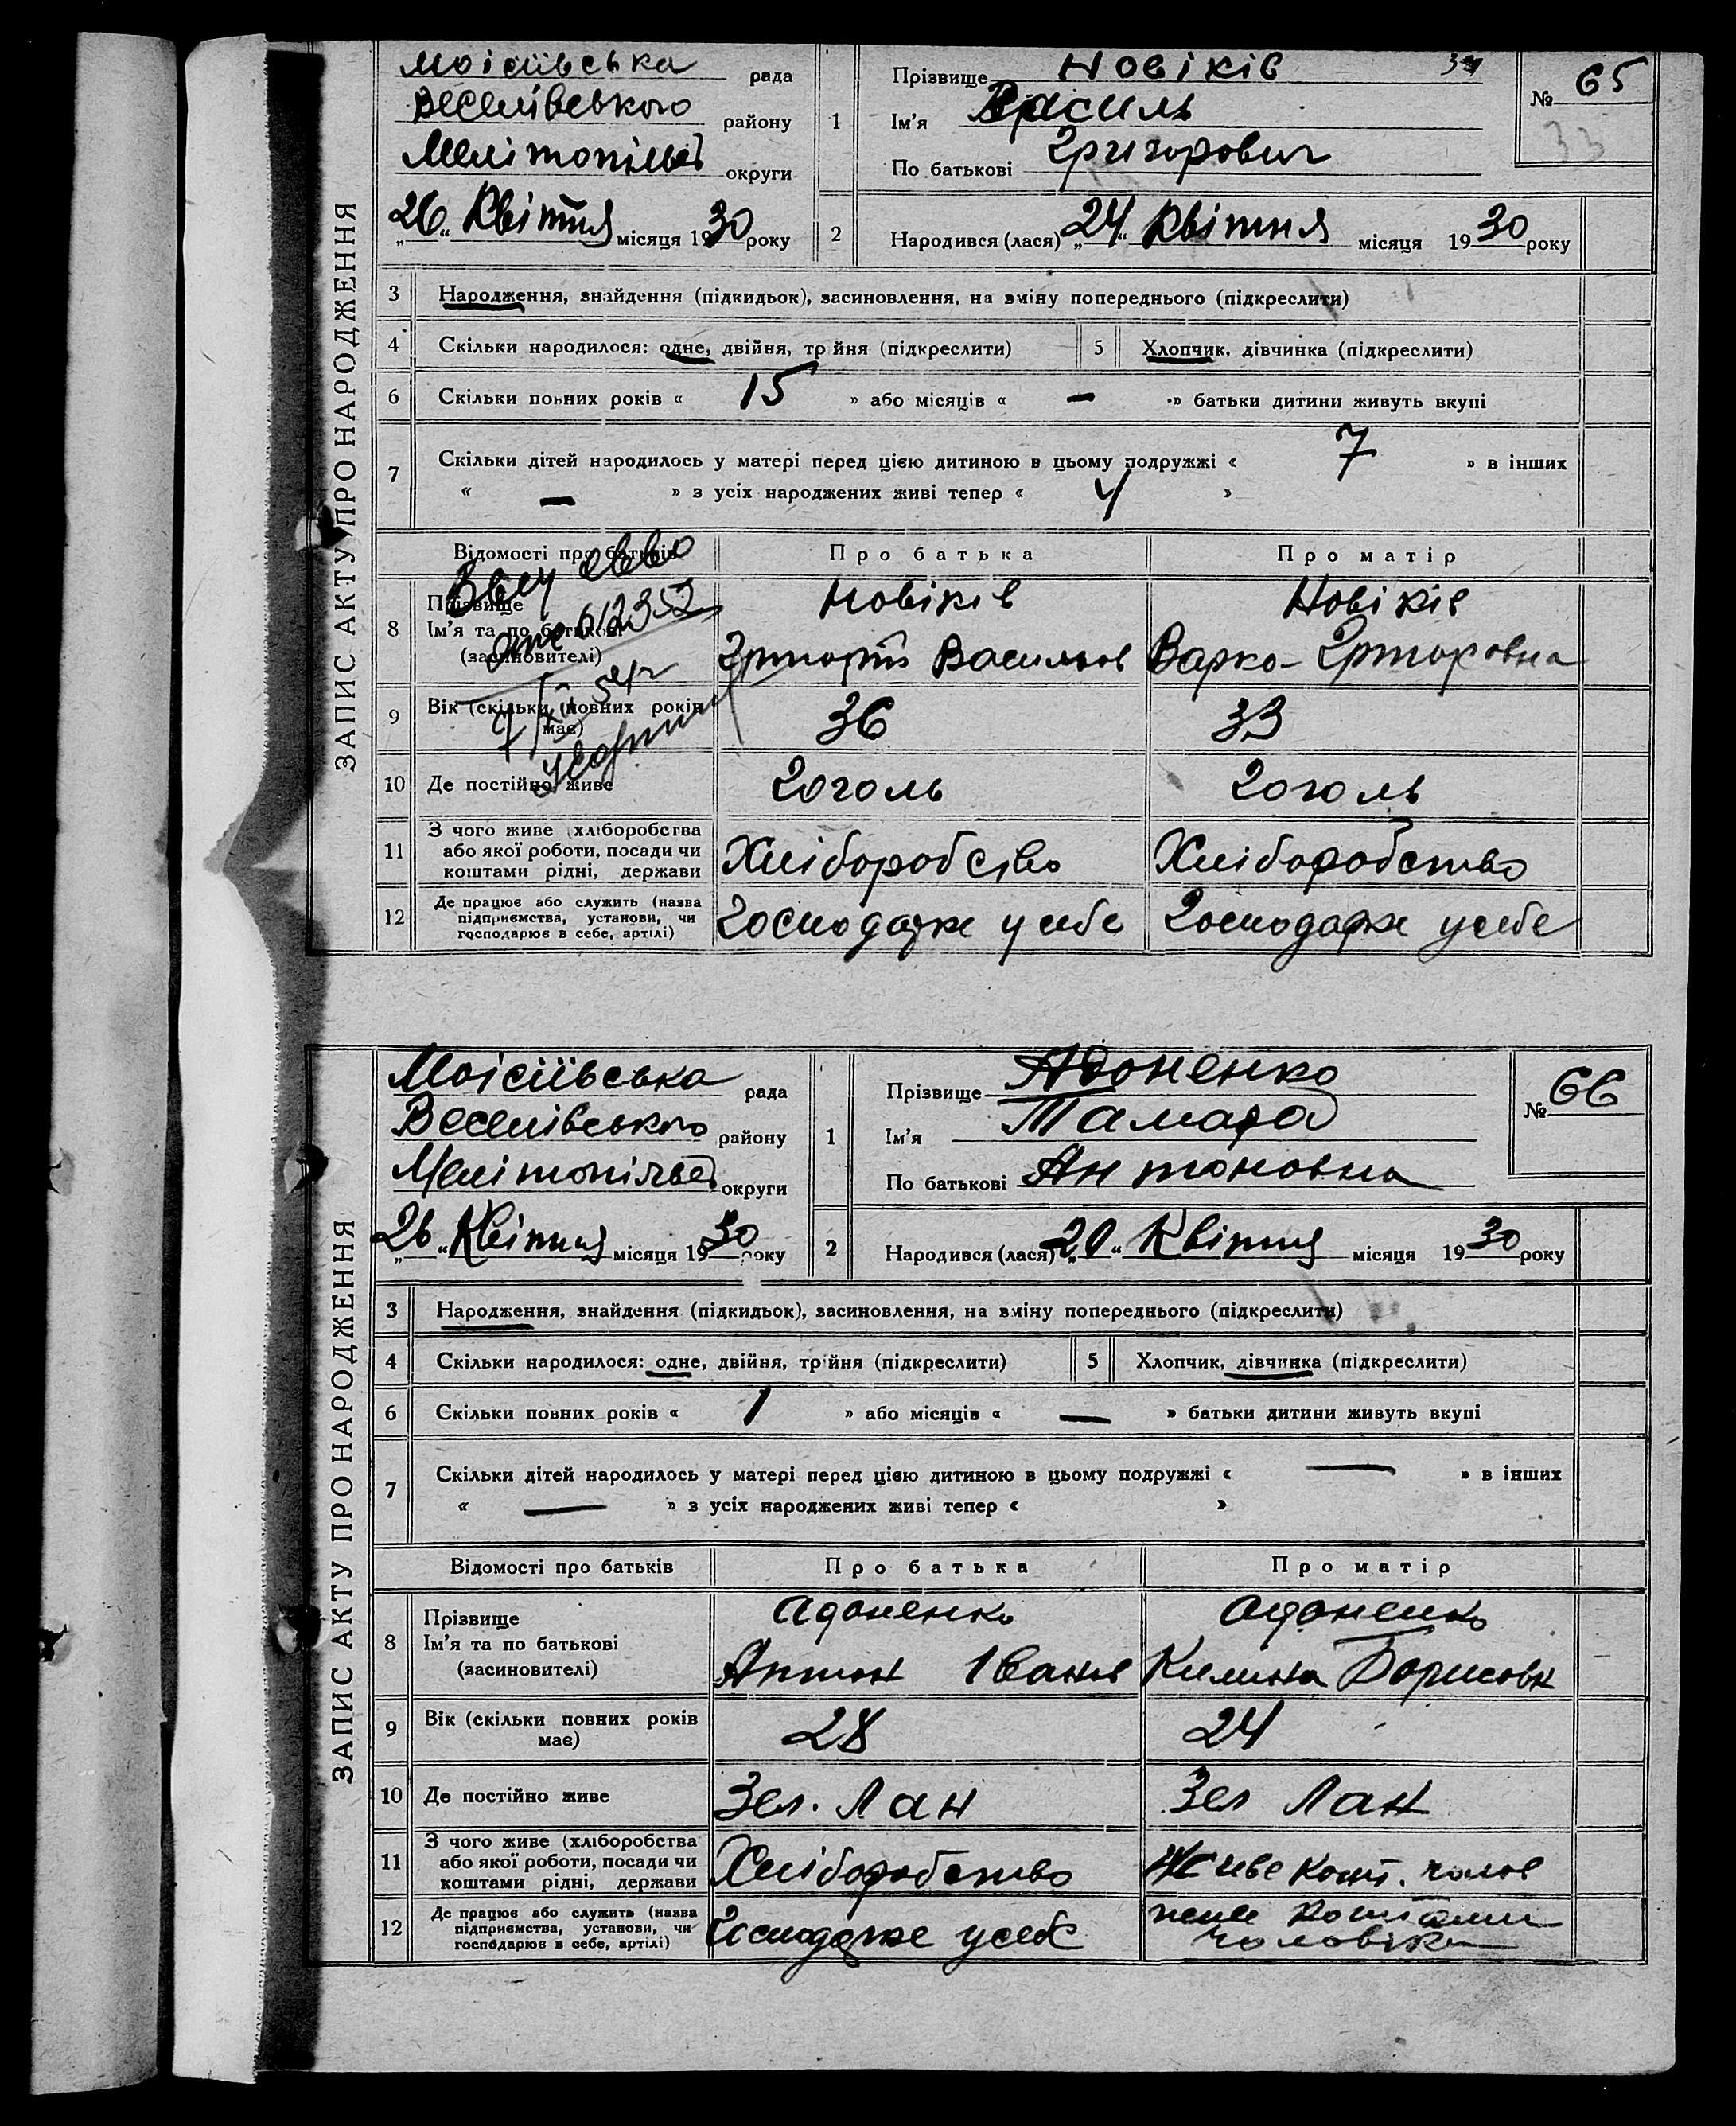 ЗАПИС АКТУ ПРО НАРОДЖЕННЯ
Моісіївська рада
Веселівського району
Мелітопільської округи
„26“ Квітня місяця 1930 року
1 Прізвище Новіків
Ім'я Василь
По батькові Григорович
№ 65
33
2 Народився (лася) „24“ Квітня місяця 1930 року
3 Народження, знайдення (підкидьок), засиновлення, на зміну попереднього (підкреслити)
4 Скільки народилося: одне, двійня, трійня (підкреслити)
5 Хлопчик, дівчинка (підкреслити)
6 Скільки повних років « 15 » або місяців « — » батьки дитини живуть вкупі
7 Скільки дітей народилось у матері перед цією дитиною в цьому подружжі « 7 » в інших
« — » з усіх народжених живі тепер « 4 »
Відомості про батьків Про батька Про матір
8 Прізвище Новіків Новіків
Ім'я та по батькові
(засиновителі) Григорій Васильов Варка Григоровна
9 Вік (скільки повних років має) 36 33
10 Де постійно живе Гоголь Гоголь
11 З чого живе (хліборобства
або якої роботи, посади чи
коштами рідні, держави Хліборобство Хліборобство
12 Де працює або служить (назва
підприємства, установи, чи
господарює в себе, артілі) Господарює у себе Господарює у себе
ЗАПИС АКТУ ПРО НАРОДЖЕННЯ
Моісіївська рада
Веселівського району
Мелітопільської округи
„26“ Квітня місяця 1930 року
1 Прізвище Адоненко
Ім'я Тамара
По батькові Антоновна
№ 66
2 Народився (лася) „20“ Квітня місяця 1930 року
3 Народження, знайдення (підкидьок), засиновлення, на зміну попереднього (підкреслити)
4 Скільки народилося: одне, двійня, трійня (підкреслити)
5 Хлопчик, дівчинка (підкреслити)
6 Скільки повних років « 1 » або місяців « — » батьки дитини живуть вкупі
7 Скільки дітей народилось у матері перед цією дитиною в цьому подружжі « — » в інших
« — » з усіх народжених живі тепер « »
Відомості про батьків Про батька Про матір
8 Прізвище Адоненко Адоненко
Ім'я та по батькові
(засиновителі) Антон Іванов Килина Борисовн
9 Вік (скільки повних років
має) 28 24
10 Де постійно живе Зел. Лан Зел Лан
11 З чого живе (хліборобства
або якої роботи, посади чи
коштами рідні, держави Хліборобство Живе кошт. чолов
12 Де працює або служить (назва
підприємства, установи, чи
господарює в себе, артілі) Господарює у себе живе коштами
чоловіка